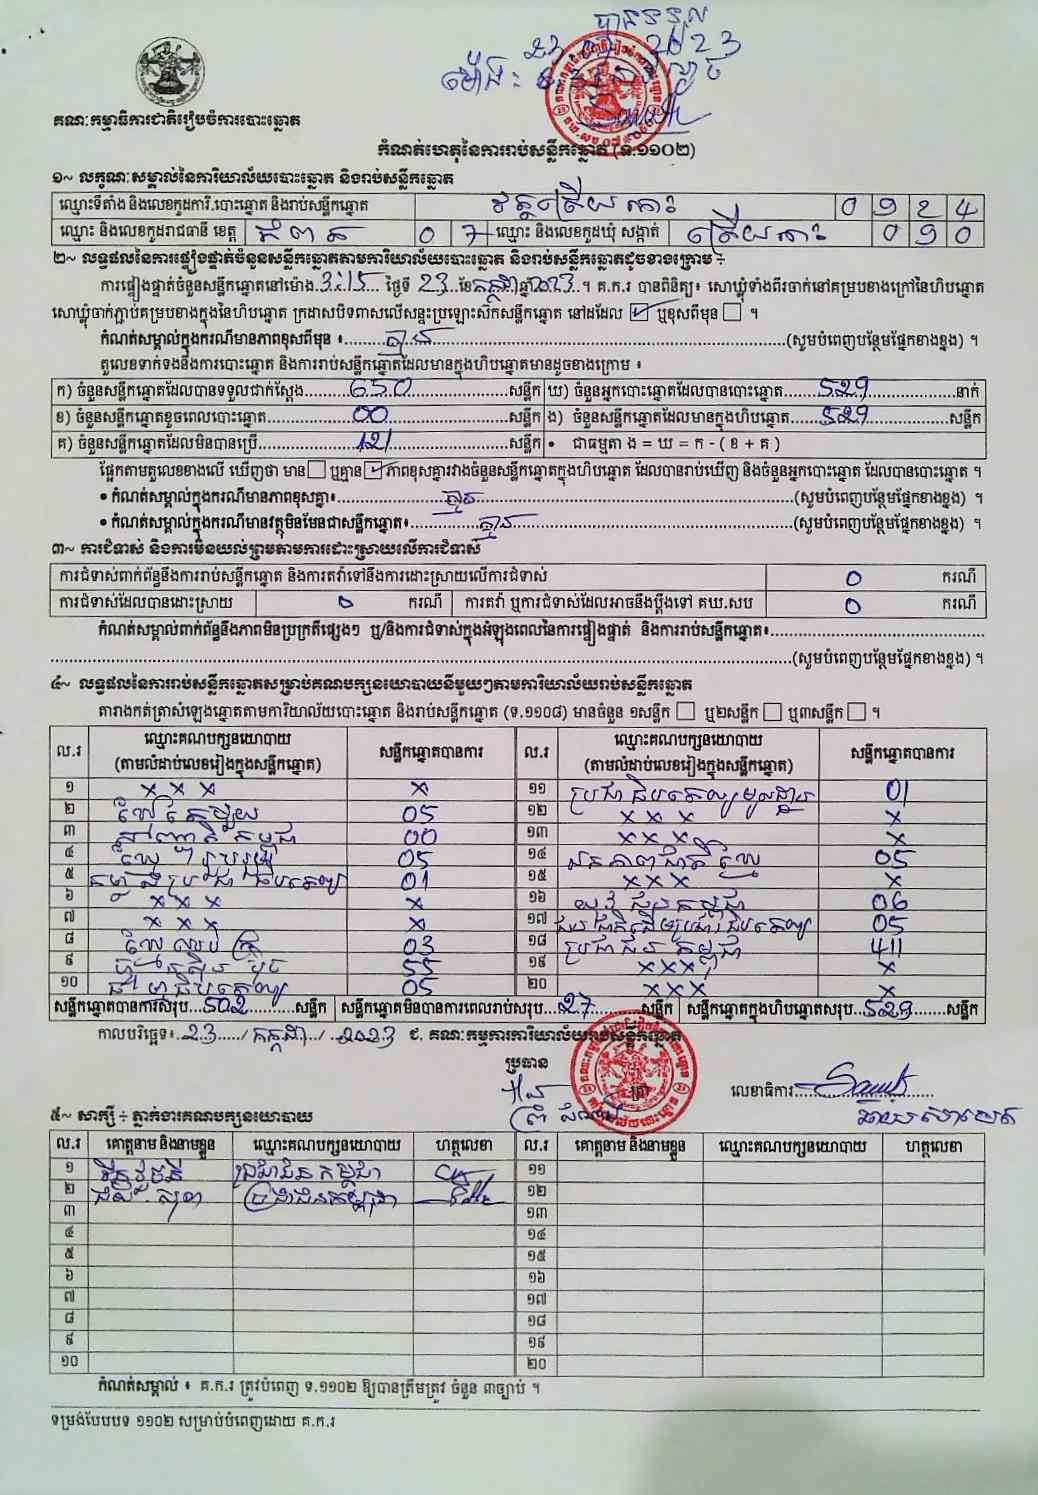 បានទទួល
23 07 2023
ម៉ោង:
គណៈកម្មាធិការជាតិរៀបចំការបោះឆ្នោត
កំណត់ហេតុនៃការរាប់សន្លឹកឆ្នោត (ទ.១១០២)
១~ លក្ខណៈសម្គាល់នៃការិយាល័យបោះឆ្នោត និងរាប់សន្លឹកឆ្នោត
ឈ្មោះទីតាំង និងលេខកូដការិ.បោះឆ្នោត និងរាប់សន្លឹកឆ្នោត វត្តត្រើយកោះ 0 9 2 4
ឈ្មោះ និងលេខកូដរាជធានី ខេត្ត កំពត 0 7 ឈ្មោះ និងលេខកូដឃុំ សង្កាត់ ត្រើយកោះ 0 9 0
២~ លទ្ធផលនៃការផ្ទៀងផ្ទាត់ចំនួនសន្លឹកឆ្នោតតាមការិយាល័យបោះឆ្នោត និងរាប់សន្លឹកឆ្នោតដូចខាងក្រោម ÷
ការផ្ទៀងផ្ទាត់ចំនួនសន្លឹកឆ្នោតនៅម៉ោង 3:15 ថ្ងៃទី 23 ខែ កក្កដា ឆ្នាំ 2023 ។ គ.ក.រ បានពិនិត្យ៖ សោឃ្លុំទាំងពីរចាក់នៅគម្របខាងក្រៅនៃហិបឆ្នោត
សោឃ្លុំចាក់ភ្ជាប់គម្របខាងក្នុងនៃហិបឆ្នោត ក្រដាសបិទពាសលើសន្ទះប្រឡោះសៀកសន្លឹកឆ្នោត នៅដដែល ☑ ឬខុសពីមុន ☐ ។
កំណត់សម្គាល់ក្នុងករណីមានភាពខុសពីមុន ៖ គ្មាន (សូមបំពេញបន្ថែមផ្នែកខាងខ្នង) ។
តួលេខទាក់ទងនឹងការបោះឆ្នោត និងការរាប់សន្លឹកឆ្នោតដែលមានក្នុងហិបឆ្នោតមានដូចខាងក្រោម ៖
ក) ចំនួនសន្លឹកឆ្នោតដែលបានទទួលជាក់ស្ដែង 650 សន្លឹក ឃ) ចំនួនអ្នកបោះឆ្នោតដែលបានបោះឆ្នោត 529 នាក់
ខ) ចំនួនសន្លឹកឆ្នោតខូចពេលបោះឆ្នោត 00 សន្លឹក ង) ចំនួនសន្លឹកឆ្នោតដែលមានក្នុងហិបឆ្នោត 529 សន្លឹក
គ) ចំនួនសន្លឹកឆ្នោតដែលមិនបានប្រើ 121 សន្លឹក • ជាធម្មតា ង = ឃ = ក - ( ខ + គ )
ផ្អែកតាមតួលេខខាងលើ ឃើញថា មាន ☐ ឬគ្មាន ☑ ភាពខុសគ្នារវាងចំនួនសន្លឹកឆ្នោតក្នុងហិបឆ្នោត ដែលបានរាប់ឃើញ និងចំនួនអ្នកបោះឆ្នោត ដែលបានបោះឆ្នោត ។
• កំណត់សម្គាល់ក្នុងករណីមានភាពខុសគ្នា៖ គ្មាន (សូមបំពេញបន្ថែមផ្នែកខាងខ្នង) ។
• កំណត់សម្គាល់ក្នុងករណីមានវត្ថុមិនមែនជាសន្លឹកឆ្នោត៖ គ្មាន (សូមបំពេញបន្ថែមផ្នែកខាងខ្នង) ។
៣~ ការជំទាស់ និងការមិនយល់ព្រមតាមការដោះស្រាយលើការជំទាស់
ការជំទាស់ពាក់ព័ន្ធនឹងការរាប់សន្លឹកឆ្នោត និងការតវ៉ាទៅនឹងការដោះស្រាយលើការជំទាស់ 0 ករណី
ការជំទាស់ដែលបានដោះស្រាយ 0 ករណី ការតវ៉ា ឬការជំទាស់ដែលអាចនឹងប្ដឹងទៅ គឃ.សប 0 ករណី
កំណត់សម្គាល់ពាក់ព័ន្ធនឹងភាពមិនប្រក្រតីផ្សេងៗ ឬ/និងការជំទាស់ក្នុងអំឡុងពេលនៃការផ្ទៀងផ្ទាត់ និងការរាប់សន្លឹកឆ្នោត៖
(សូមបំពេញបន្ថែមផ្នែកខាងខ្នង) ។
៤~ លទ្ធផលនៃការរាប់សន្លឹកឆ្នោតសម្រាប់គណបក្សនយោបាយនីមួយៗតាមការិយាល័យរាប់សន្លឹកឆ្នោត
តារាងកត់ត្រាសំឡេងឆ្នោតតាមការិយាល័យបោះឆ្នោត និងរាប់សន្លឹកឆ្នោត (ទ.១១០៨) មានចំនួន ១សន្លឹក ☐ ឬ២សន្លឹក ☐ ឬ៣សន្លឹក ☐ ។
ល.រ ឈ្មោះគណបក្សនយោបាយ (តាមលំដាប់លេខរៀងក្នុងសន្លឹកឆ្នោត) សន្លឹកឆ្នោតបានការ ល.រ ឈ្មោះគណបក្សនយោបាយ (តាមលំដាប់លេខរៀងក្នុងសន្លឹកឆ្នោត) សន្លឹកឆ្នោតបានការ
១ x x x x ១១ ប្រជាធិបតេយ្យមូលដ្ឋាន 01
២ ខ្មែរតែមួយ 05 ១២ x x x x
៣ កម្ពុជា 00 ១៣ x x x x
៤ ខ្មែររួបរួម 05 ១៤ ឯកភាពជាតិខ្មែរ 05
៥ កម្លាំងប្រជាធិបតេយ្យ 01 ១៥ x x x x
៦ x x x x ១៦ យុវជនកម្ពុជា 06
៧ x x x x ១៧ ជនជាតិដើមប្រជាធិបតេយ្យ 05
៨ ខ្មែរឈប់ក្រ 03 ១៨ ប្រជាជនកម្ពុជា 411
៩ ហ្វ៊ុនស៊ិនប៉ិច 55 ១៩ x x x x
១០ ធម្មាធិបតេយ្យ 05 ២០ x x x x
សន្លឹកឆ្នោតបានការសរុប 502 សន្លឹក សន្លឹកឆ្នោតមិនបានការពេលរាប់សរុប 27 សន្លឹក សន្លឹកឆ្នោតក្នុងហិបឆ្នោតសរុប 529 សន្លឹក
កាលបរិច្ឆេទ៖ 23 / កក្កដា / 2023 ជ. គណៈកម្មការការិយាល័យរាប់សន្លឹកឆ្នោត
ប្រធាន
លេខាធិការ
៥~ សាក្សី ÷ ភ្នាក់ងារគណបក្សនយោបាយ
ល.រ គោត្តនាម និងនាមខ្លួន ឈ្មោះគណបក្សនយោបាយ ហត្ថលេខា ល.រ គោត្តនាម និងនាមខ្លួន ឈ្មោះគណបក្សនយោបាយ ហត្ថលេខា
១ ប្រជាជនកម្ពុជា ១១
២ ប្រជាជនកម្ពុជា ១២
៣ ១៣
៤ ១៤
៥ ១៥
៦ ១៦
៧ ១៧
៨ ១៨
៩ ១៩
១០ ២០
កំណត់សម្គាល់ ៖ គ.ក.រ ត្រូវបំពេញ ទ.១១០២ ឱ្យបានត្រឹមត្រូវ ចំនួន ៣ច្បាប់ ។
ទម្រង់បែបបទ ១១០២ សម្រាប់បំពេញដោយ គ.ក.រ